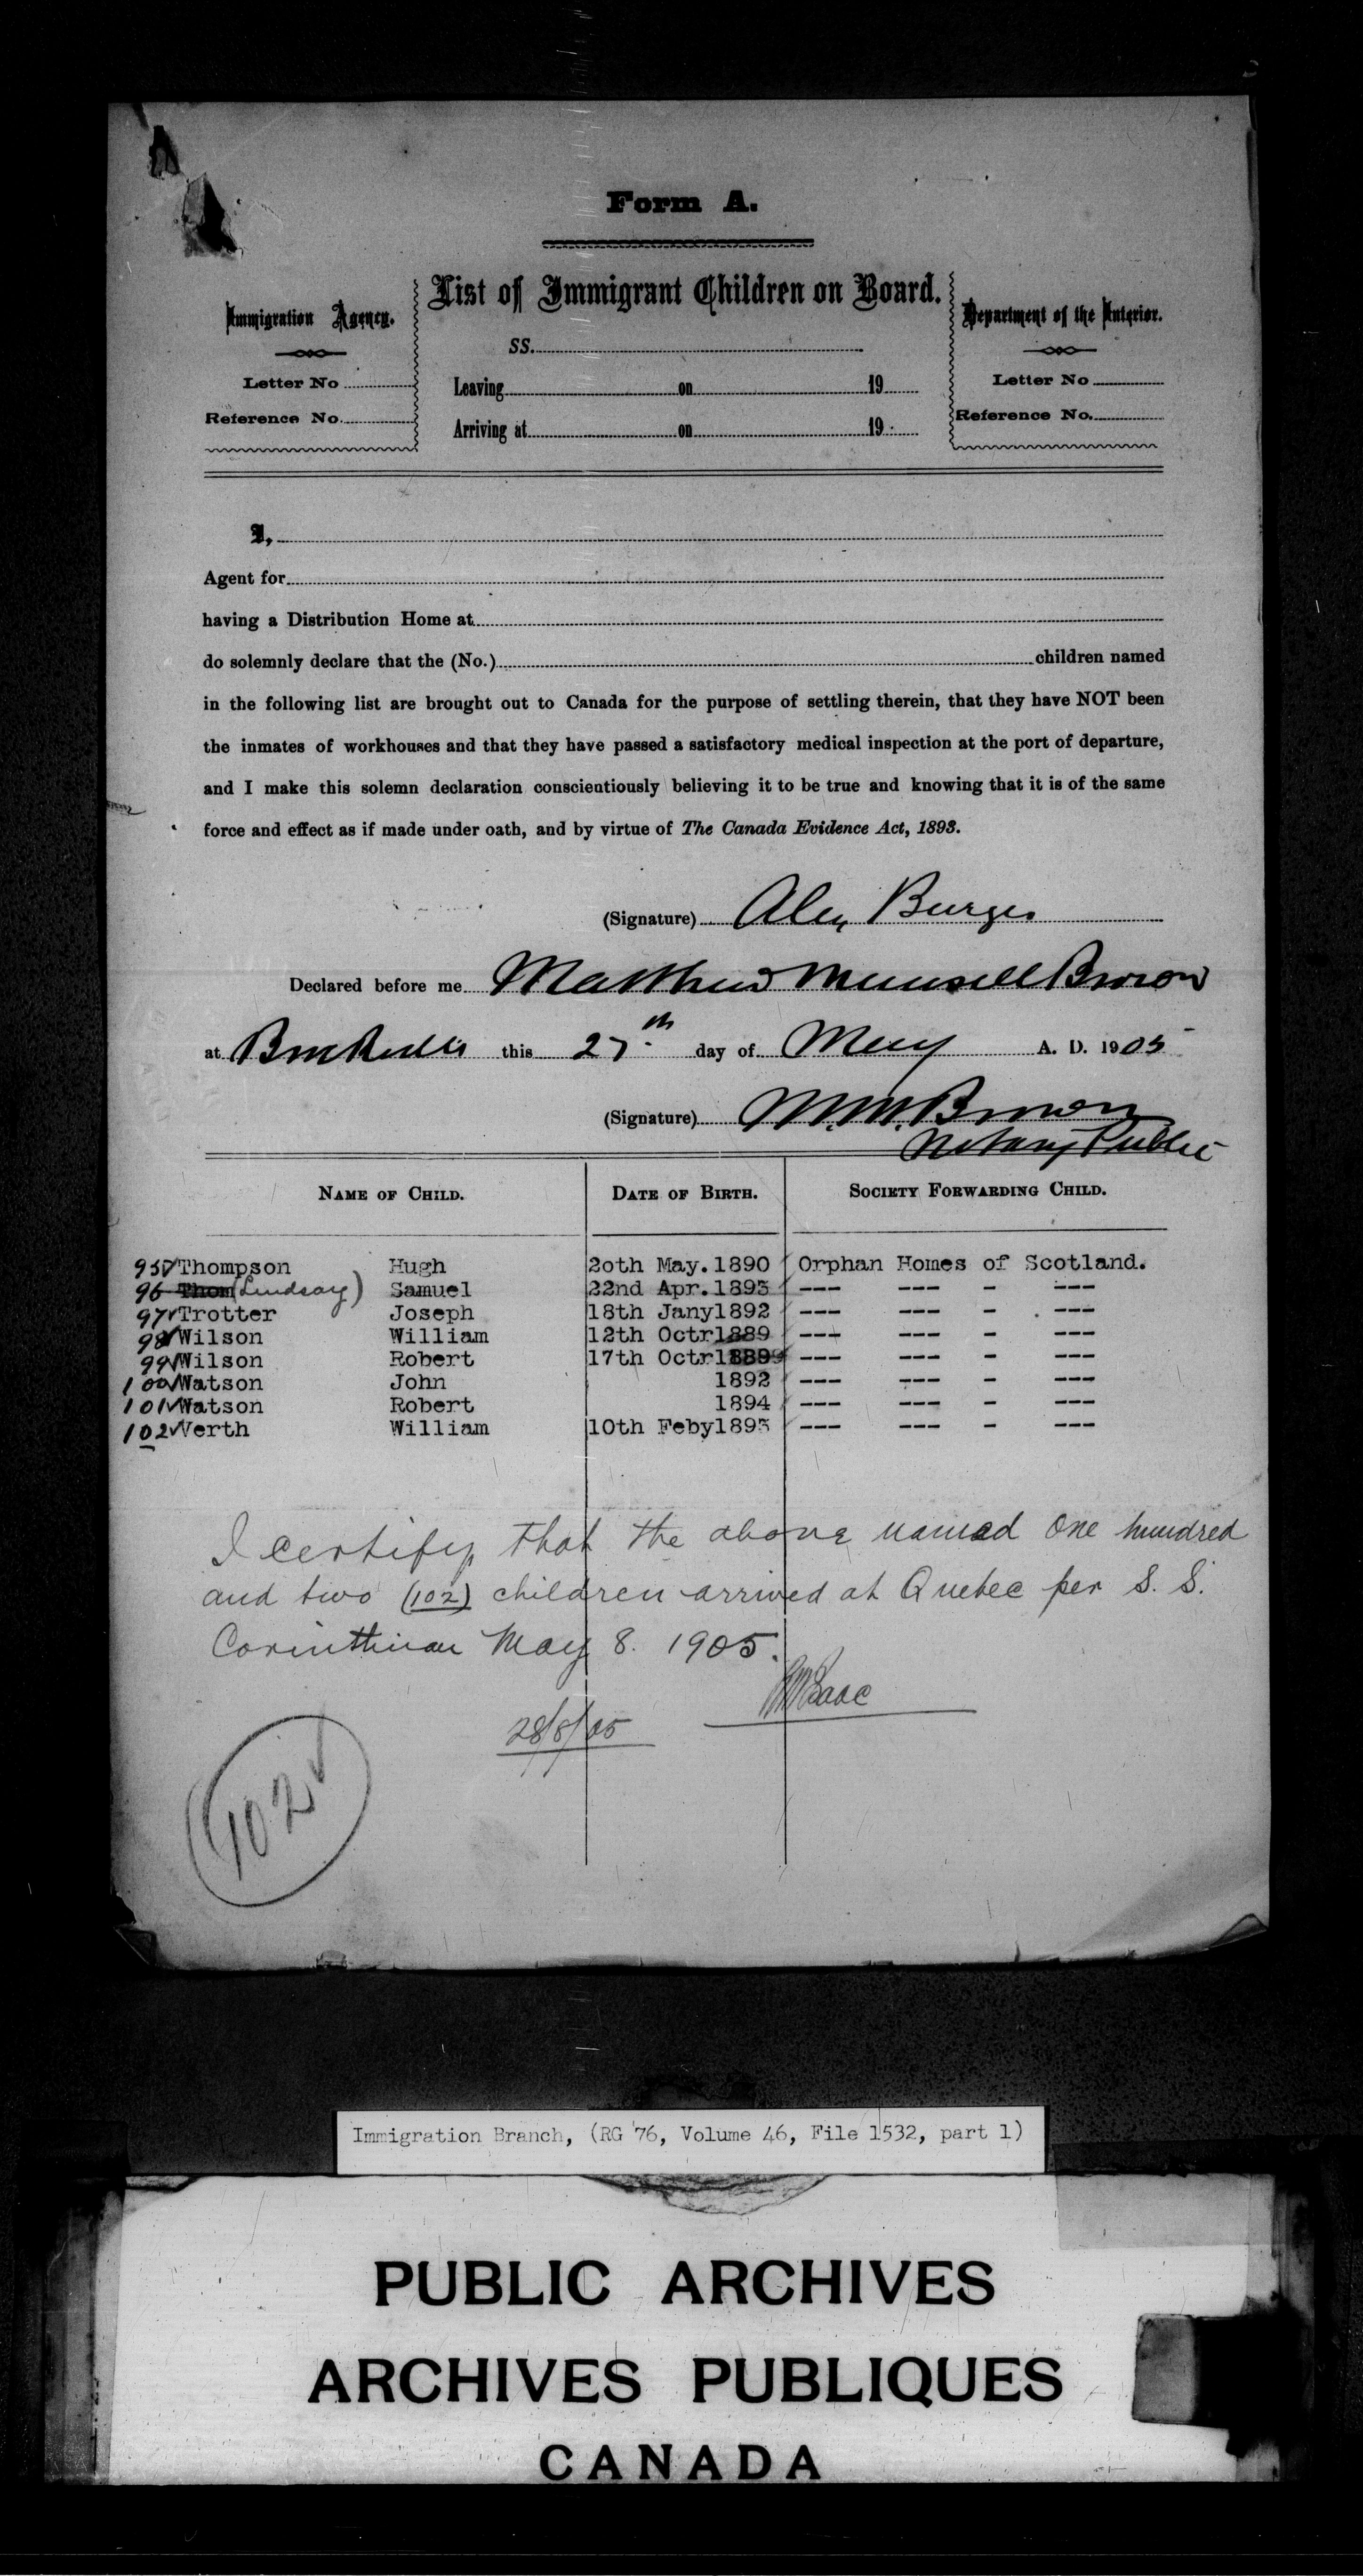 Form A.
List of Immigrant Children on Board.
Immigration Agency.
Letter No
Reference No.
SS.
Leaving on 19
Arriving at on 19
Department of the Interior.
Letter No
Reference No.
I,
Agent for
having a Distribution Home at
do solemnly declare that the (No.) children named
in the following list are brought out to Canada for the purpose of settling therein, that they have NOT been
the inmates of workhouses and that they have passed a satisfactory medical inspection at the port of departure,
and I make this solemn declaration conscientiously believing it to be true and knowing that it is of the same
force and effect as if made under oath, and by virtue of The Canada Evidence Act, 1893.
(Signature) Alex Burges
Declared before me Matthew Munsell Brown
at Brockville this 27th day of May A. D. 1905
(Signature) M. M. Brown
Notary Public
NAME OF CHILD. DATE OF BIRTH. SOCIETY FORWARDING CHILD.
95 Thompson Hugh 20th May. 1890 Orphan Homes of Scotland.
96 Thom (Lindsay) Samuel 22nd Apr. 1893 --- --- - ---
97 Trotter Joseph 18th Jany1892 --- --- - ---
98 Wilson William 12th Octr1889 --- --- - ---
99 Wilson Robert 17th Octr1889 --- --- - ---
100 Watson John 1892 --- --- - ---
101 Watson Robert 1894 --- --- - ---
102 Verth William 10th Feby1893 --- --- - ---
I certify that the above named one hundred
and two (102) children arrived at Quebec per S. S.
Corinthian May 8. 1905.
28/8/05
102
Immigration Branch, (RG 76, Volume 46, File 1532, part 1)
PUBLIC ARCHIVES
ARCHIVES PUBLIQUES
CANADA